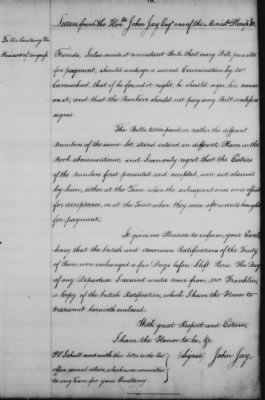 Letter from the Hon.ble John Jay Esqr one of the Minist. Plenip. &c
To His Excellency the
President of Congress
Friends, I also made it a constant Rule that every Bill presented
for payment, should undergo a second Examination by Mr
Carmichael, that if he found it right, he should sign his name
on it; and that the Bankers should not pay any Bill unless so
signed
The Bills twice paid, or rather the different
Numbers of the same Set, stand entered in different Places in the
Book abovementioned, and I sincerely regret that the Entries
of the numbers first presented and accepted, were not observed
by him, either at the Time when the subsequent ones were offered
for acceptance, or at the Time when they were afterwards brought
for payment.
It gives me Pleasure to inform your Excel-
lency that the british and American Ratifications of the Treaty
of Peace were exchanged a few Days before I left Paris. The Day
of my Departure I received under cover from Mr Franklin,
a Copy of the british Ratification, which I have the Honor to
transmit herewith enclosed.
With great Respect and Esteem,
I have the Honor to be, &c
(Signed) John Jay.
PS I shall send with this letter to the Post
Office some others, which were committed
to my Care for your Excellency